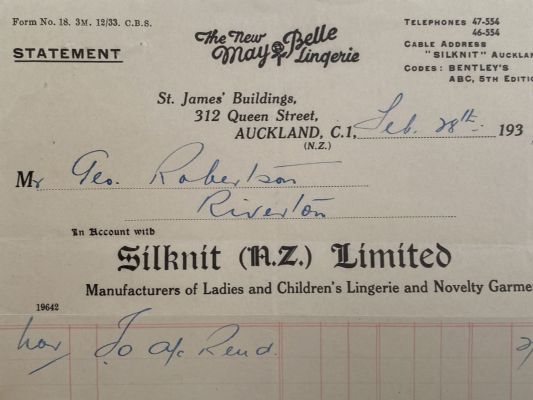 Form No. 18. 3M. 12/33. C.B.S.
STATEMENT
The New
May Belle
Lingerie
TELEPHONES 47-554
46-554
CABLE ADDRESS
"SILKNIT" AUCKLAN
CODES: BENTLEY'S
ABC, 5TH EDITIO
St. James' Buildings,
312 Queen Street,
AUCKLAND, C.1, Feb. 28th 193
(N.Z.)
Mr Geo. Robertson
Riverton
In Account with
Silknit (N.Z.) Limited
Manufacturers of Ladies and Children's Lingerie and Novelty Garme
19642
Nov To a/c Rend.